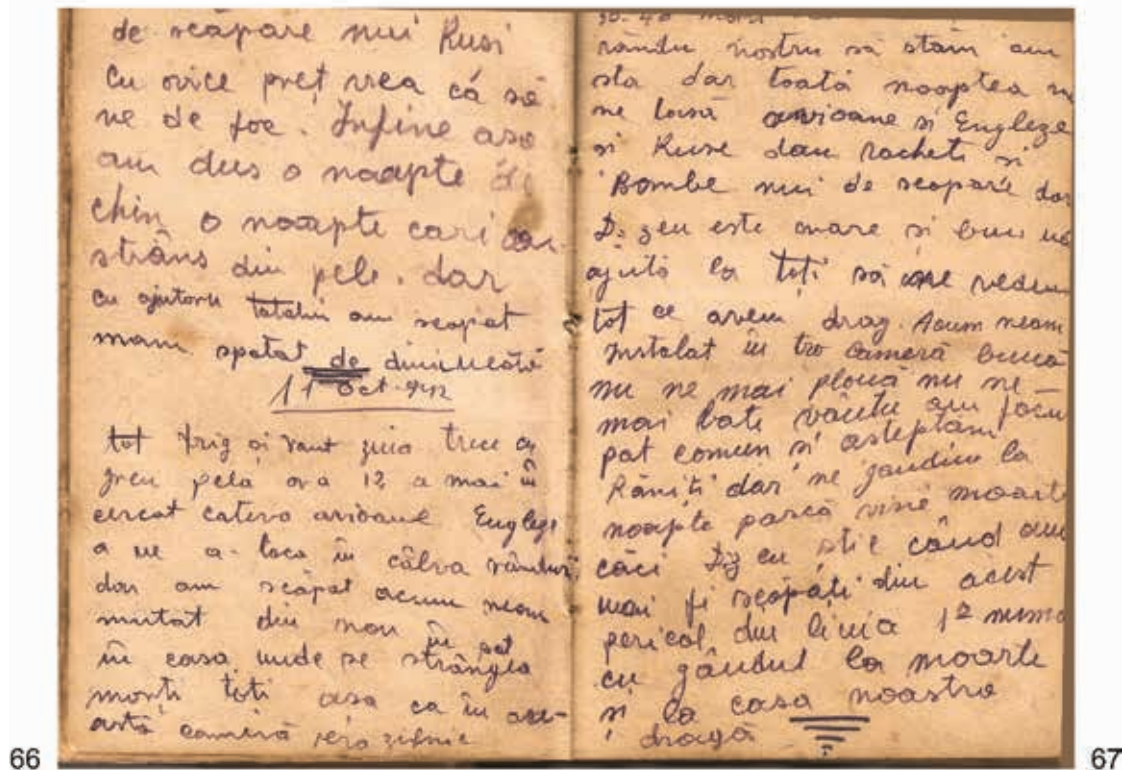 de scăpare nui Rusi
cu orice preț vrea că să
ne de foc. Infine asa
am dus o noapte de
chin o noapte cari
strâns din pele. dar
cu ajutoru tatalui am scapat
mam spalat de dimineată
11 Oct. 942
tot frig și vant ziua trece
greu pela ora 12 a mai în
cercat cateva avioane Engleze
a ne a- taca în câtva rânduri
dar am scăpat acum neam
mutat din nou în sat
în casa unde se strângea
morți toți asa ca în ace-
astă cameră era zilnic
66
30-40 morti
rându nostru să stăm am
sta dar toată noaptea
ne lasă avioane si Engleze
si Ruse dau racheti si
Bombe nui de scapare dar
D-zeu este mare si bun
ajută la toți să ne vedem
tot ce avem drag. Acum neam
instalat in tro cameră bună
nu ne mai plouă nu ne-
mai bate vântu am facut
pat comun si asteptăm
Răniți dar ne gandim la
noapte parcă vine moarte
căci Dzeu stie când am
mai fi scăpați din acest
pericol din linia 1ª numa
cu gândul la moarte
si la casa noastra
dragă
67